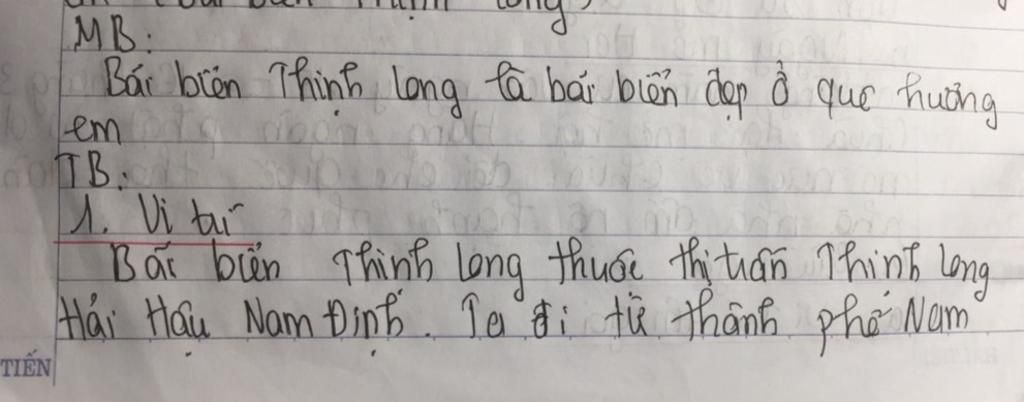 Thịnh Long
MB:
Bãi biển Thịnh Long là bãi biển đẹp ở quê hương
em
TB:
1. Vị trí
Bãi biển Thịnh Long thuộc thị trấn Thịnh Long
Hải Hậu Nam Định. Ta đi từ thành phố Nam
TIẾN